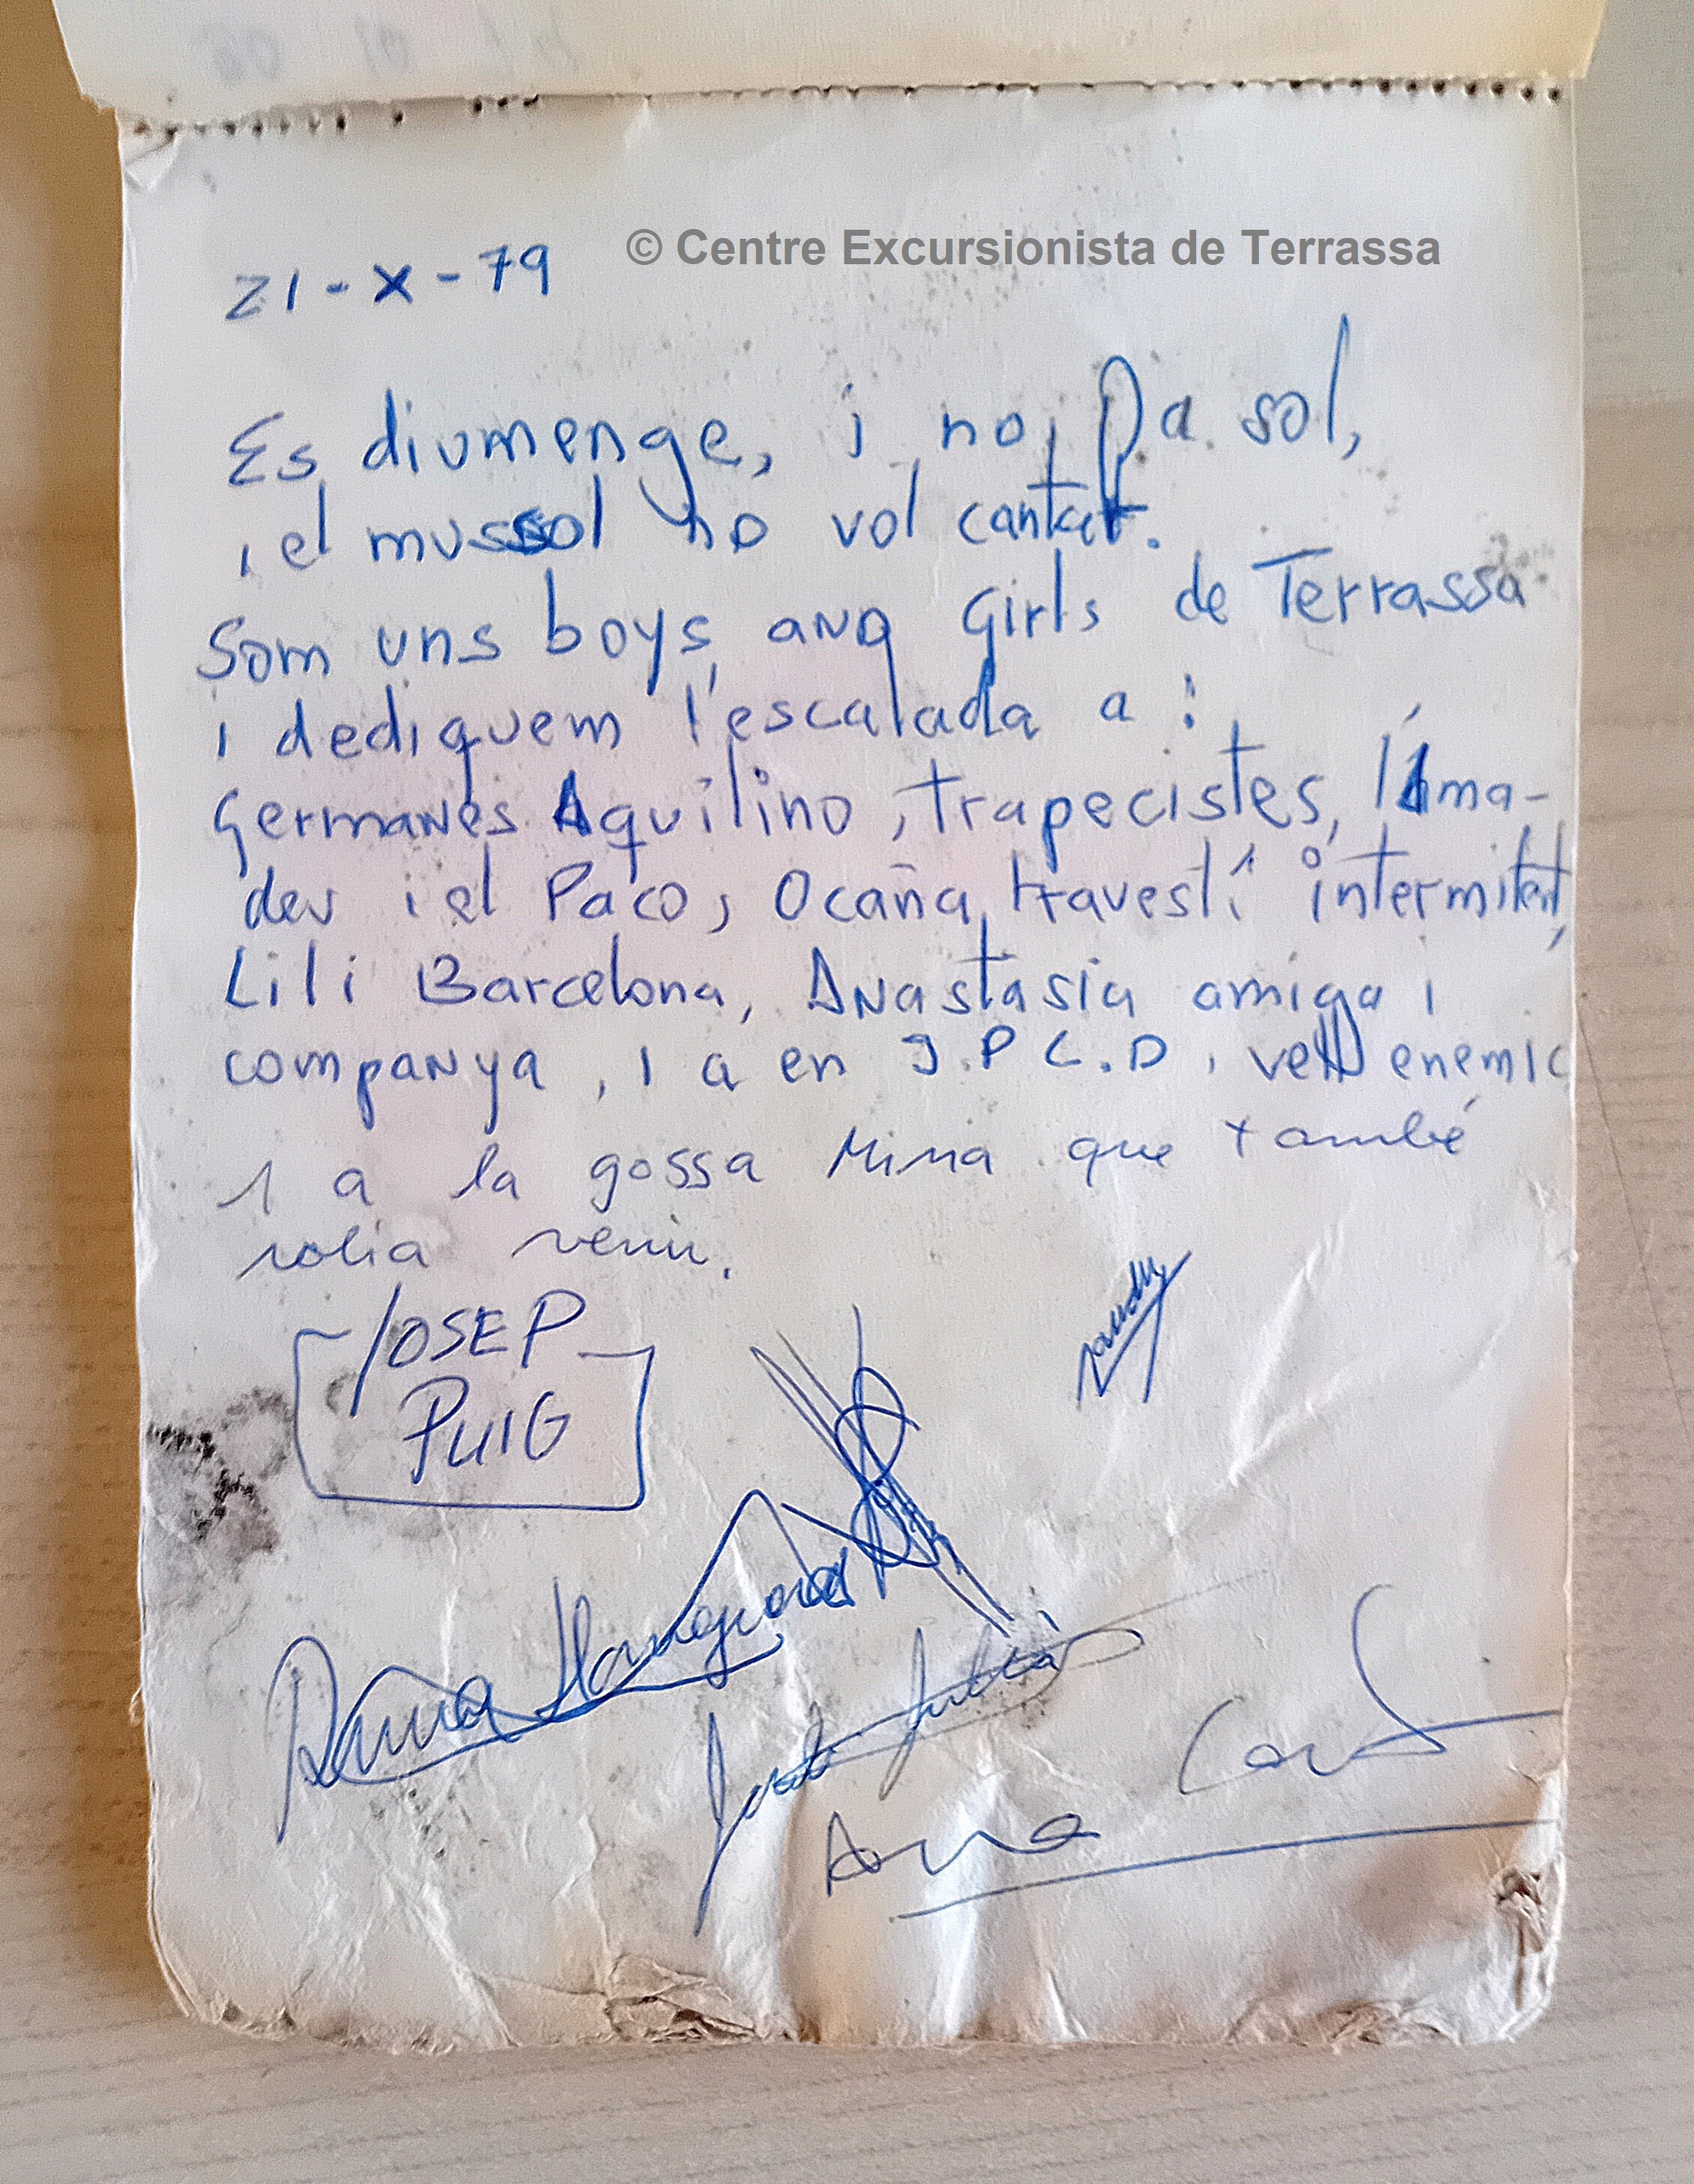 © Centre Excursionista de Terrassa
21-X-79
Es diumenge, i no fa sol,
i el mussol no vol cantar.
Som uns boys and Girls de Terrassa
i dediquem l'escalada a:
Germanes Aquilino, trapecistes, l'Ama-
deu i el Paco, Ocaña, travestí intermitent,
Lili Barcelona, Anastasia amiga i
companya, i a en J.P.C.D, vell enemic
i a la gossa Mima que també
volia venir.
JOSEP
PUIG
Jordi Julià
Anna